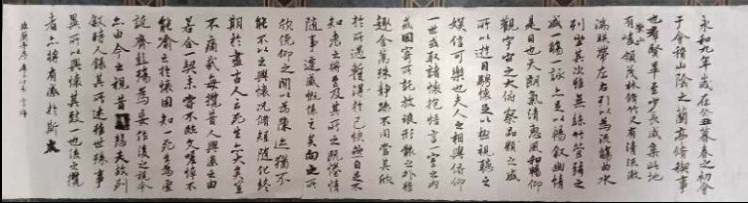 永和九年歲在癸丑暮春之初會
于會稽山陰之蘭亭脩禊事
也群賢畢至少長咸集此地
有崇山峻領茂林脩竹又有清流激
湍暎帶左右引以為流觴曲水
列坐其次雖無絲竹管弦之
盛一觴一詠亦足以暢敘幽情
是日也天朗氣清惠風和暢仰
觀宇宙之大俯察品類之盛
所以遊目騁懷足以極視聽之
娛信可樂也夫人之相與俯仰
一世或取諸懷抱悟言一室之內
或因寄所託放浪形骸之外雖
趣舍萬殊靜躁不同當其欣
於所遇蹔得於己快然自足不
知老之將至及其所之既惓情
隨事遷感慨係之矣向之所
欣俛仰之閒以為陳迹猶不
能不以之興懷況脩短隨化終
期於盡古人云死生亦大矣豈
不痛哉每攬昔人興感之由
若合一契未嘗不臨文嗟悼不
能喻之於懷固知一死生為虛
誕齊彭殤為妄作後之視今
亦由今之視昔悲夫故列
敘時人錄其所述雖世殊事
異所以興懷其致一也後之攬
者亦將有感於斯文